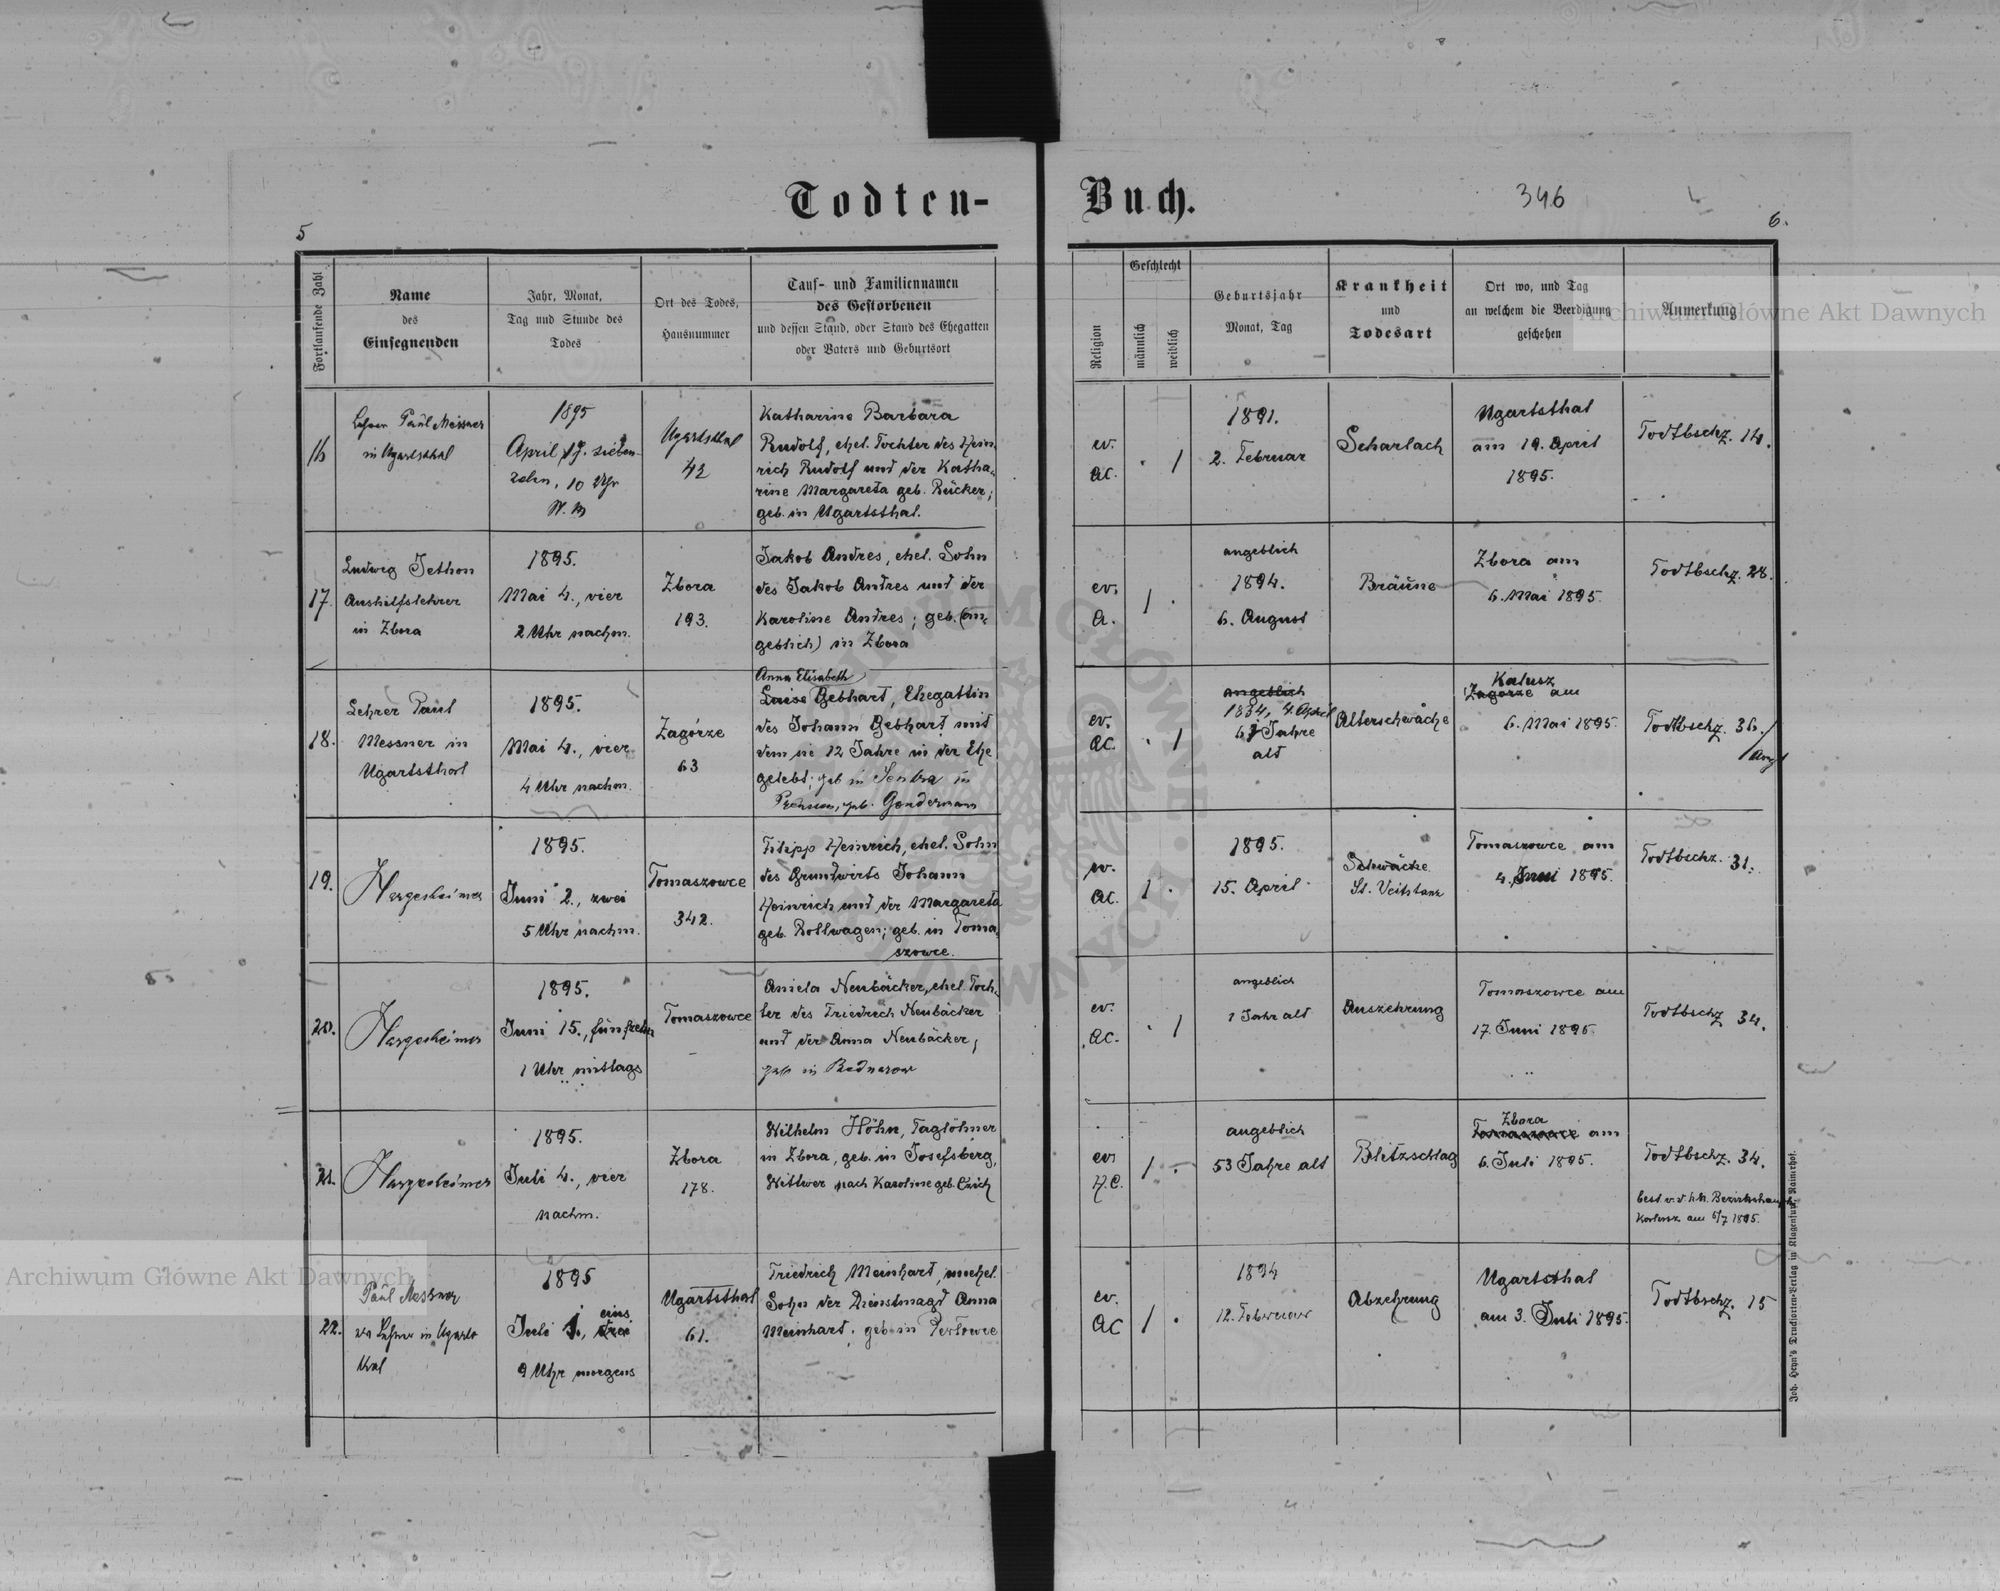 Todten-
Buch.
346
5
6.
Fortlaufende Zahl
Name
des
Einsegnenden
Jahr, Monat,
Tag und Stunde des
Todes
Ort des Todes,
Hausnummer
Tauf- und Familiennamen
des Gestorbenen
und dessen Stand, oder Stand des Ehegatten
oder Vaters und Geburtsort
Religion
Geschlecht
männlich
weiblich
Geburtsjahr
Monat, Tag
Krankheit
und
Todesart
Ort wo, und Tag
an welchem die Beerdigung
geschehen
Anmerkung
Archiwum Główne Akt Dawnych
16
Lehrer Paul Messner
in Ugartsthal
1895
April 17. sieben-
zehn, 10 Uhr
Ugartsthal
42
Katharine Barbara
Rudolf, ehel. Tochter des Hein-
rich Rudolf und der Katha-
rine Margareta geb. Rücker;
geb. in Ugartsthal.
ev.
AC.
. 1
1891.
2. Februar
Scharlach
Ugartsthal
am 19. April
1895.
Todtbschz. 14.
17.
Ludwig Jethon
Aushilfslehrer
in Zbora
1895.
Mai 4., vier
2 Uhr nachm.
Zbora
193.
Jakob Andres, ehel. Sohn
des Jakob Andres und der
Karoline Andres; geb. (an-
geblich) in Zbora
ev.
A.
1 .
angeblich
1894.
6. August
Bräune
Zbora am
6. Mai 1895.
Todtbschz. 28.
18.
Lehrer Paul
Messner in
Ugartsthal
1895.
Mai 4., vier
4 Uhr nachm.
Zagórze
63
Anna Elisabeth
Luise Gebhart, Ehegattin
des Johann Gebhart mit
dem sie 12 Jahre in der Ehe
gelebt; geb in
geb. Gonderman
ev.
AC.
. 1
angeblich
1834, 4. April
61 Jahre
alt
Alterschwäche
Kalusz
Zagórze am
6. Mai 1895.
Todtbschz. 36.
19.
Hargesheimer
1895.
Juni 2., zwei
5 Uhr nachm.
Tomaszowce
342.
Filipp Heinrich, ehel. Sohn
des Grundwirts Johann
Heinrich und der Margareta
geb. Rollwagen; geb. in Toma-
szowce.
ev.
AC.
1 .
1895.
15. April
Schwäche
St. Veitstanz
Tomaszowce am
4. Juni 1895.
Todtbschz. 31.
20.
Hargesheimer
1895.
Juni 15., fünfzehn
1 Uhr mittags
Tomaszowce
Aniela Neubäcker, ehel. Toch-
ter des Friedrich Neubäcker
und der Anna Neubäcker,
geb in Bednarow
ev.
AC.
. 1
angeblich
1 Jahr alt
Auszehrung
Tomaszowce am
17. Juni 1895.
Todtbschz 34.
21.
Hargesheimer
1895.
Juli 4., vier
nachm.
Zbora
178.
Wilhelm Höhn, Taglöhner
in Zbora, geb. in Josefsberg,
Wittwer nach Karoline geb. Czich
ev.
H.C.
1 .
angeblich
53 Jahre alt
Blitzschlag
Zbora
Tomaszowce am
6. Juli 1895.
Todtbschz. 34.
best. v. d. k.k. Bezirkshaupt.
Kalusz am 5/7 1895.
22.
Paul Messner
Lehrer in Ugarts-
thal
1895
Juli 1., eins
drei
9 Uhr morgens
Ugartsthal
61.
Friedrich Meinhart, unehel.
Sohn der Dienstmagd Anna
Meinhart, geb. in Perłowce
ev.
AC
1 .
1894
12. Februar
Abzehrung
Ugartsthal
am 3. Juli 1895.
Todtbschz. 15
Archiwum Główne Akt Dawnych
Joh. Heyn's Drucksorten-Verlag in Klagenfurt, Rainerhof.